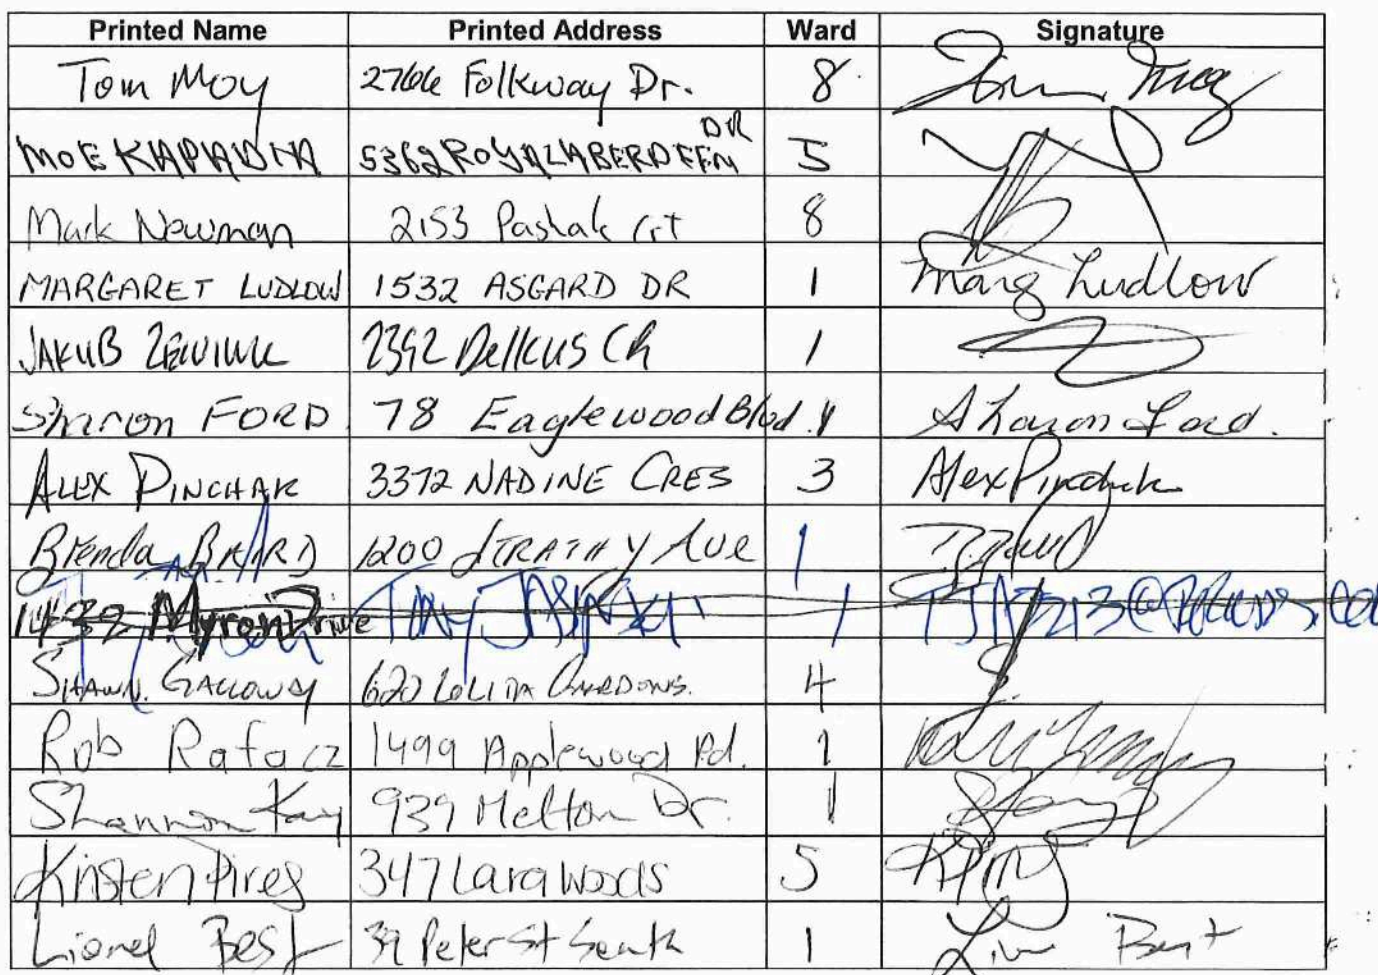 Printed Name Printed Address Ward Signature
Tom Moy 2766 Folkway Dr. 8 Tom Moy
MOE KAPADIA 5362 ROYAL ABERDEEN DR 5
Mark Newman 2153 Pashak Crt 8
MARGARET LUDLOW 1532 ASGARD DR 1 Marg Ludlow
JAKUB 2392 Dellkus CR 1
Sharon FORD 78 Eaglewood Blvd. 1 Sharon Ford.
ALEX PINCHAK 3372 NADINE CRES 3 Alex Pinchak
Brenda BAIRD 1200 STRATHY AVE 1 B Baird
1439 Myron Drive TONY 1
SHAWN. GALLOWAY 620 LOLITA GARDONS. 4
Rob Rafacz 1499 Applewood Rd. 1
Shannon Kay 939 Melton Dr. 1
Kristen Pires 347 Lara Woods 5 KPires
Lionel Best 39 Peter St South 1 Best